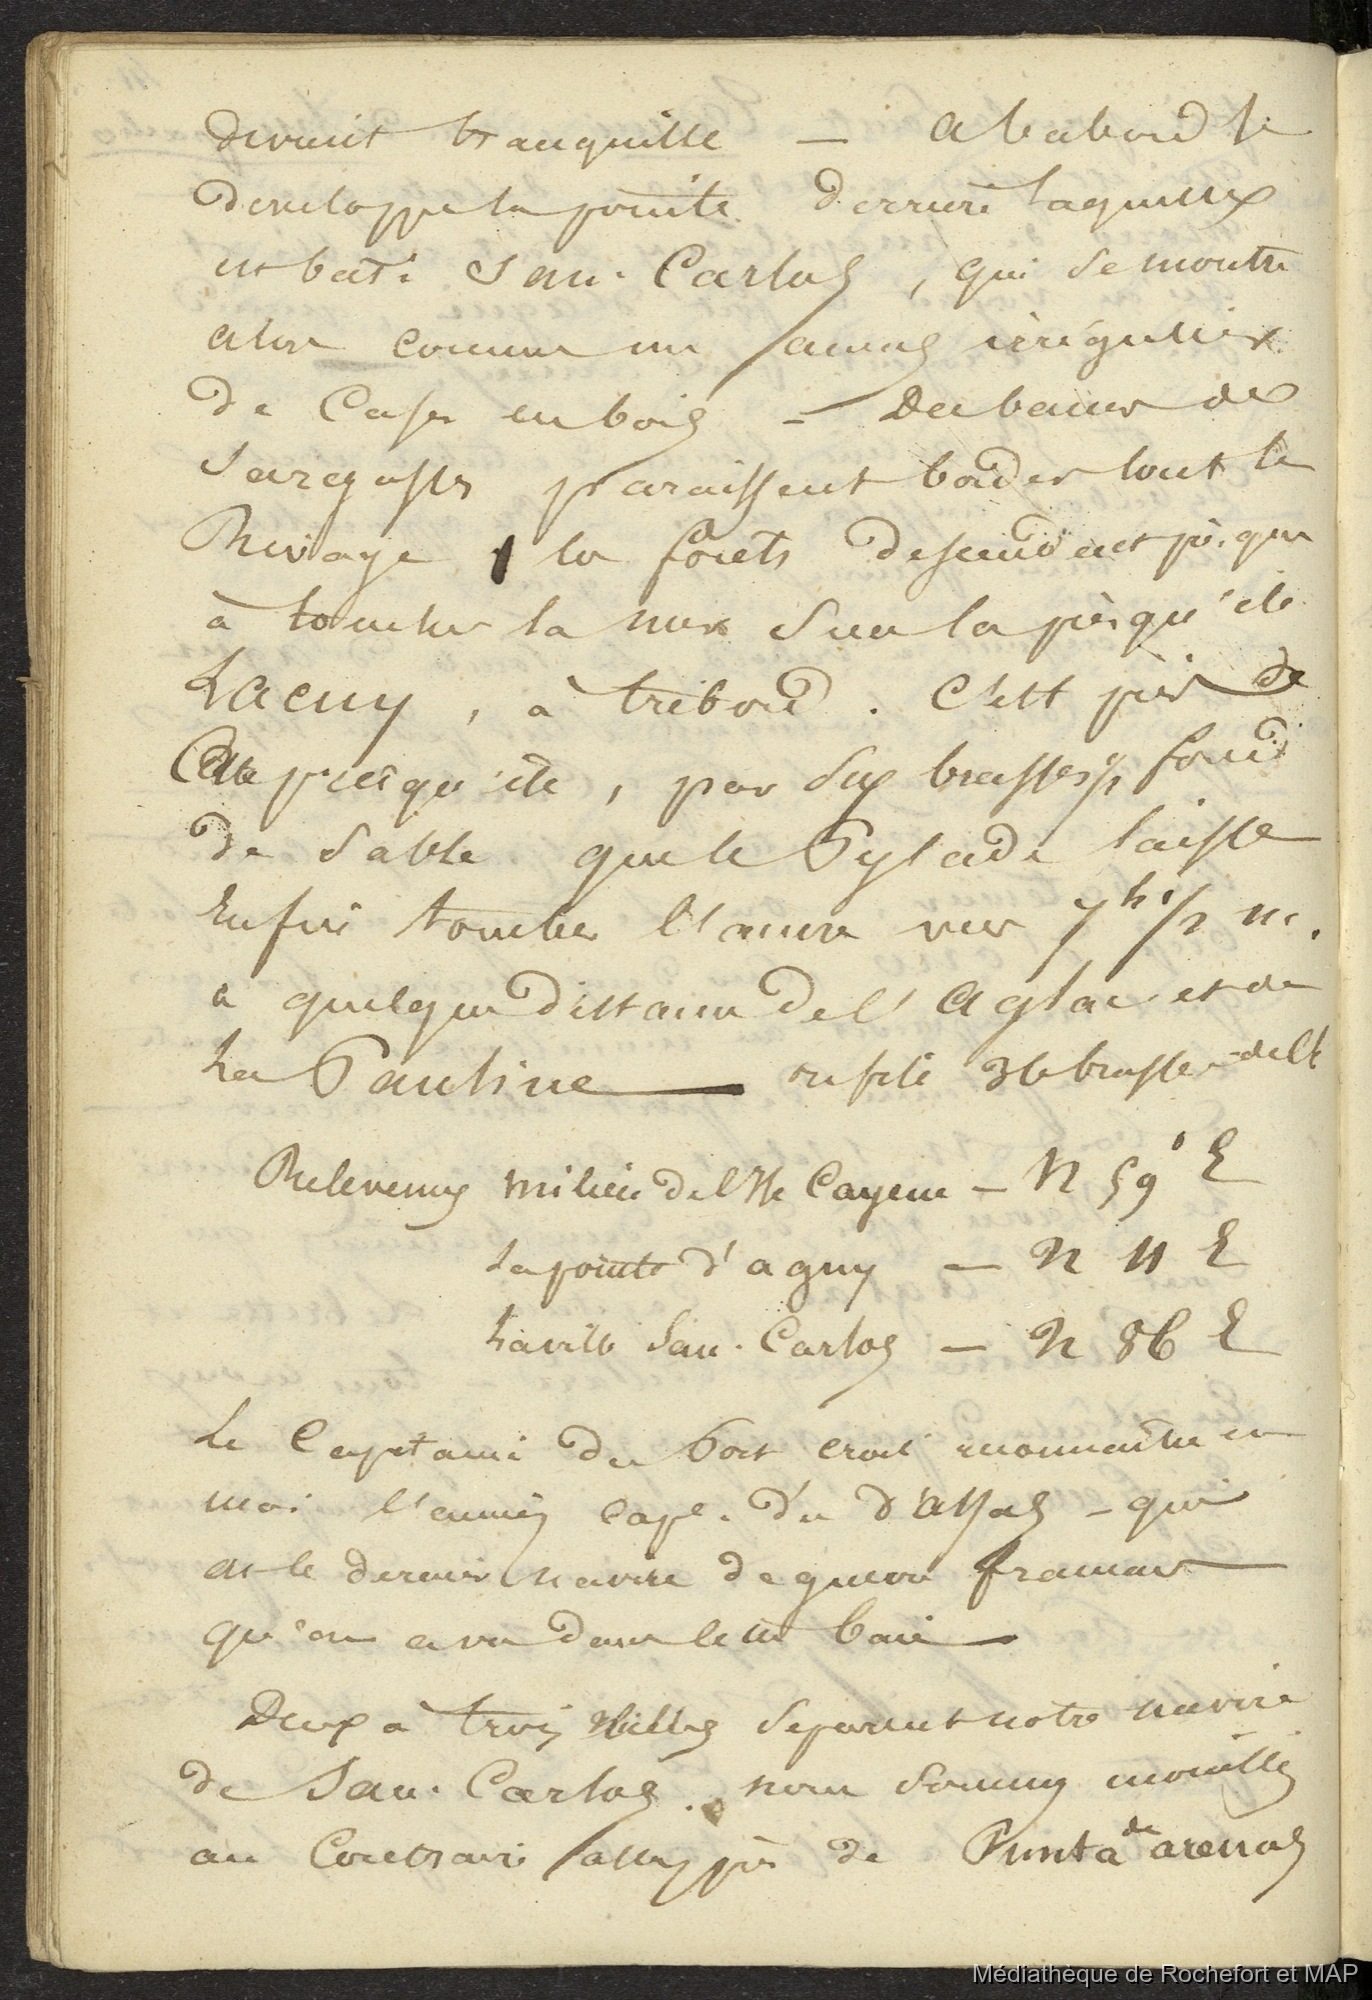 devient tranquille — A babord se
developpe la pointe derrière laquelle
est bati San. Carlos, qui se montre
alors comme un amas irrégulier
de Cases en bois — Des bancs de
Sargasses paraissent border tout le
Rivage, les forêts descendent presque
à toucher la mer sur la presqu'ile
Lacuy, à tribord. C'est près de
Cette presqu'ile, par six brasses ½ fond
de sable que le Pylade laisse
Enfin tomber l'ancre vers 7h ½ m.
a quelque distance de l'Aglaé et de
La Pauline — 36 brasses
Relevemens milieu de l'Ile Cayenu — N 59° E
La pointe d'aguy — N 11 E
La ville San. Carlos — N 86 E
Le Capitaine du Port croit reconnaître en
moi l'ancien cape. du d'Assas — qui
est le dernier navire de guerre francais
qu'on a vu dans cette baie —
Deux à trois Milles separent notre navire
de San. Carlos. nous sommes mouillés
au Contraire assez près de Punta de arenas
Médiathèque de Rochefort et MAP